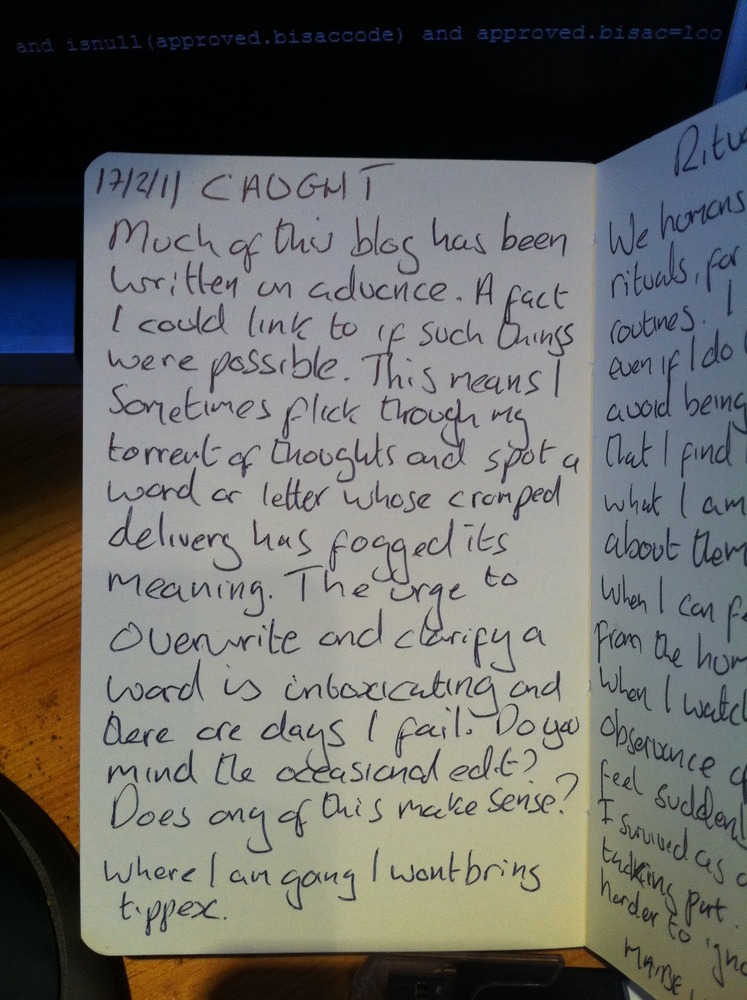 and isnull(approved.bisaccode) and approved.bisac=loo
17/2/11 CAUGHT
Much of this blog has been
written in advance. A fact
I could link to if such things
were possible. This means I
Sometimes flick through my
torrent of thoughts and spot a
word or letter whose cramped
delivery has fogged its
meaning. The urge to
Overwrite and clarify a
word is intoxicating and
there are days I fail. Do you
mind the occasional edit?
Does any of this make sense?
Where I am going I wont bring
tippex.
Ritu
We humans
rituals, for
routines. I
even if I do
avoid being
that I find
what I am
about them
When I can fe
from the hum
When I watch
observance of
feel suddenl
I survived as a
taking part.
harder to igno
MAYBE I